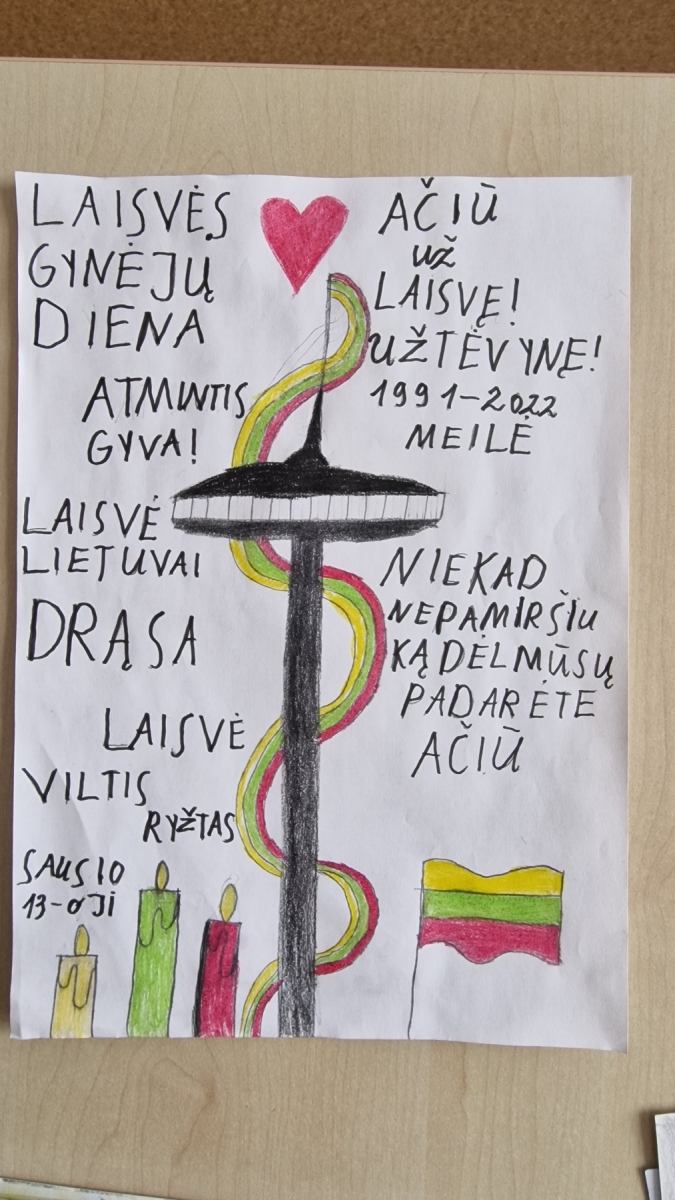 LAISVĖS
GYNĖJŲ
DIENA
ATMINTIS
GYVA!
LAISVĖ
LIETUVAI
DRĄSA
LAISVĖ
VILTIS
RYŽTAS
SAUSIO
13-OJI
AČIŪ
UŽ
LAISVĘ!
UŽ TĖVYNĘ!
1991-2022
MEILĖ
NIEKAD
NEPAMIRŠIU
KĄ DĖL MŪSŲ
PADARĖTE
AČIŪ